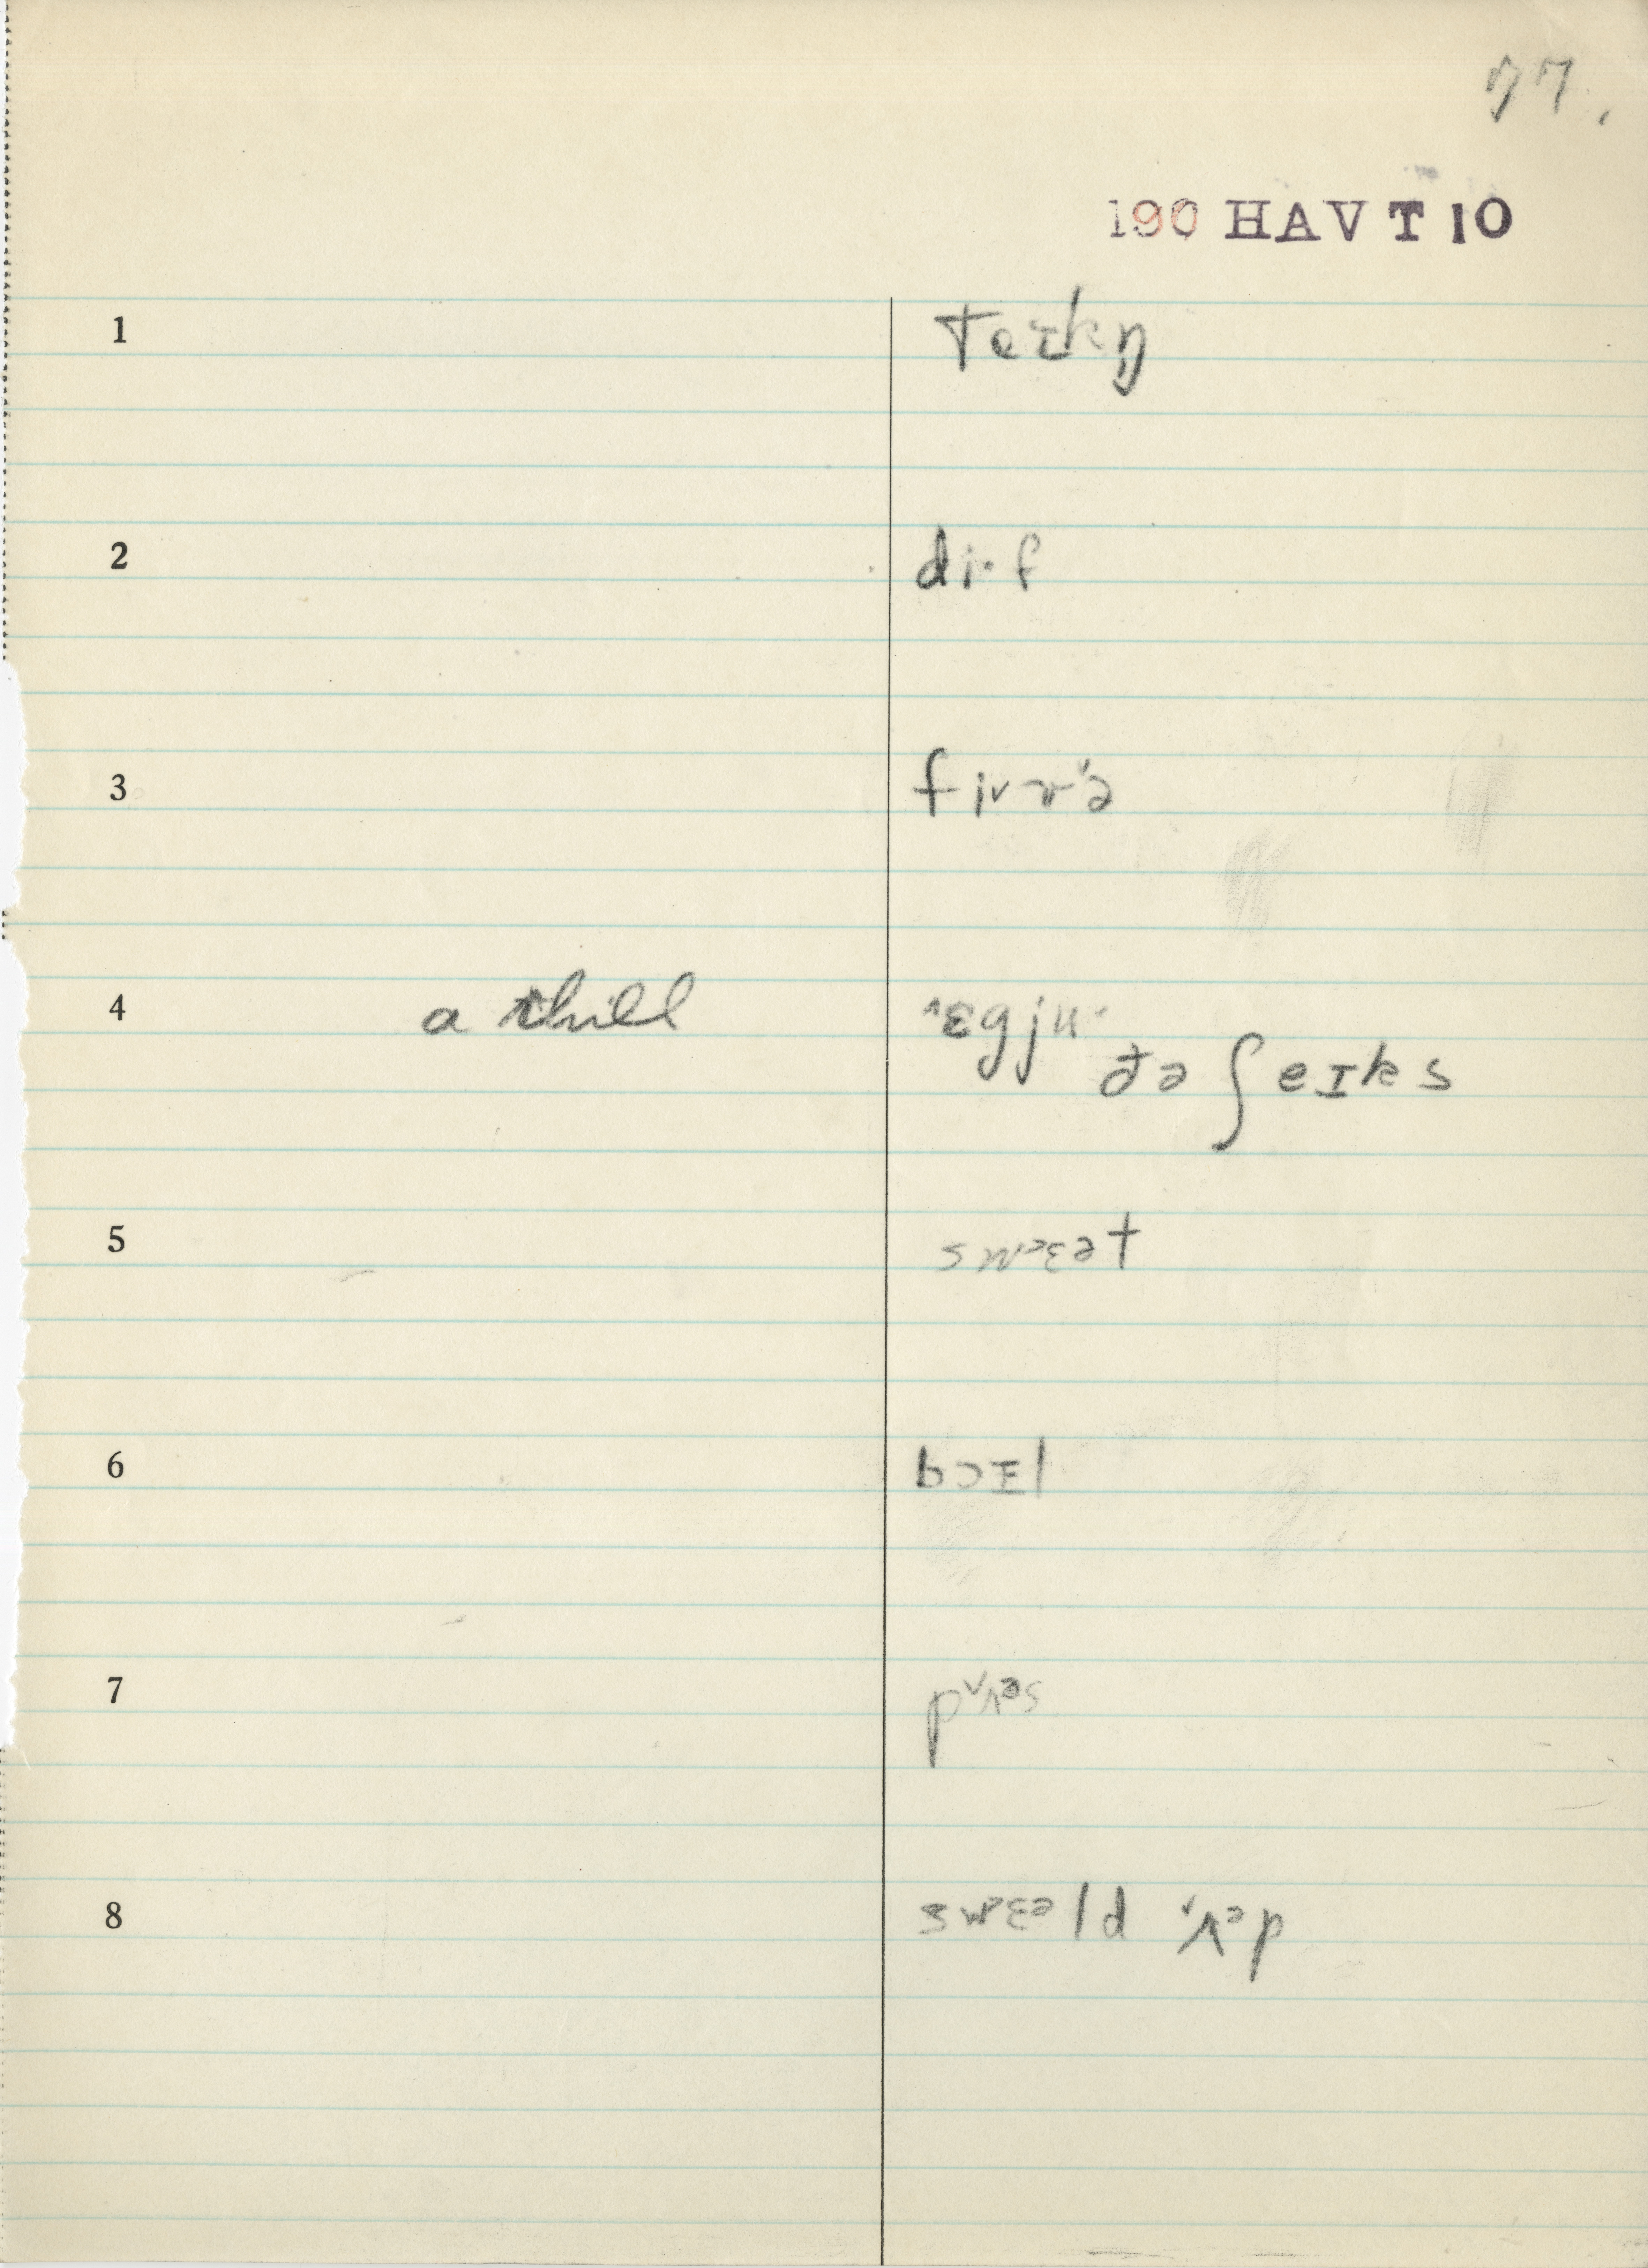 77.
190 HAVT10
1 teɪkŋ̩
2 di·f
3 fɨvɚ˞ə
4 a chill ˈɛgju·
ðə ʃeɪks
5 swɛət
6 bɔɪl
7 pʌəs
8 swɛəld ʌəp